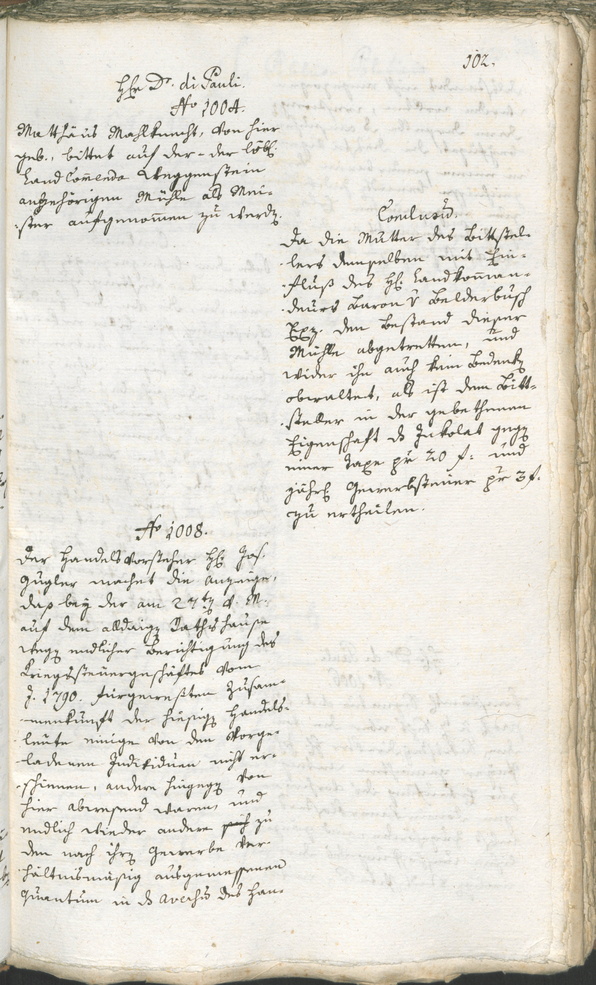 102.
Hr Dr. di Pauli.
No 1004.
Matthäus Mahlknecht, von hier
geb., bittet auf der - der löbl.
Landkom̄enda Weggenstein
angehörigen Mühle als Mei-
ster aufgenom̄en zu werdn.
Conclusū.
Da die Mutter des Bittstel-
lers demselben mit Ein-
fluß des H. Landkom̄an-
deurs Baron v Belderbusch
Exz. den Bestand dieser
Mühle abgetretten, und
wider ihn auch kein Bedenkn
obwaltet, als ist dem Bitt-
steller in der gebethenen
Eigenschaft ds Inkolat gegn
einer Taxe pr 20 f. und
jährl Gewerbsteuer pr 3 f.
zu ertheilen.
No 1008.
Der Handelsvorsteher H. Jos.
Gugler machet die Anzeige,
daß bey der am 27tn v. M.
auf dem alldaign Rathshause
wegn endlicher Berichtigung des
Kriegssteuergeschäftes vom
J. 1790. fürgeweßten Zusam-
menkunft der hiesign Handels-
leute einige von den Vorge-
ladenen Individuen nicht er-
schienen, andere hingegn von
hier abwesend waren, und
endlich wieder andere sich zu
dem nach ihrn Gewerbe ver-
hältnismäsig ausgemessenen
Quantum in ds Aversū des Han-